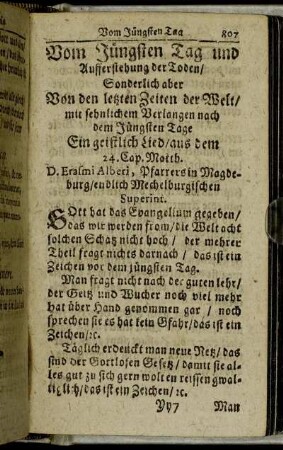 Vom Jüngsten Tag 807
Vom Jüngsten Tag und
Aufferstehung der Toden/
Sonderlich aber
Von den letzten Zeiten der Welt/
mit sehnlichem Verlangen nach
dem Jüngsten Tage
Ein geistlich Lied/aus dem
24. Cap. Matth.
D. Erasmi Alberi, Pfarrers in Magde-
burg/endlich Mechelburgischen
Superint.
GOtt hat das Evangelium gegeben/
das wir werden from/die Welt acht
solchen Schatz nicht hoch/ der mehrer
Theil fragt nichts darnach/ das ist ein
Zeichen vor dem jüngsten Tag.
Man fragt nicht nach der guten lehr/
der Geitz und Wucher noch viel mehr
hat über Hand genommen gar/ noch
sprechen sie es hat kein Gfahr/das ist ein
Zeichen/ꝛc.
Täglich erdenckt man neue Netz/das
sind der Gottlosen Gesetz/damit sie al-
les gut zu sich gern wolten reissen gwal-
tiglich/das ist ein Zeichen/ ꝛc.
Yy7 Man